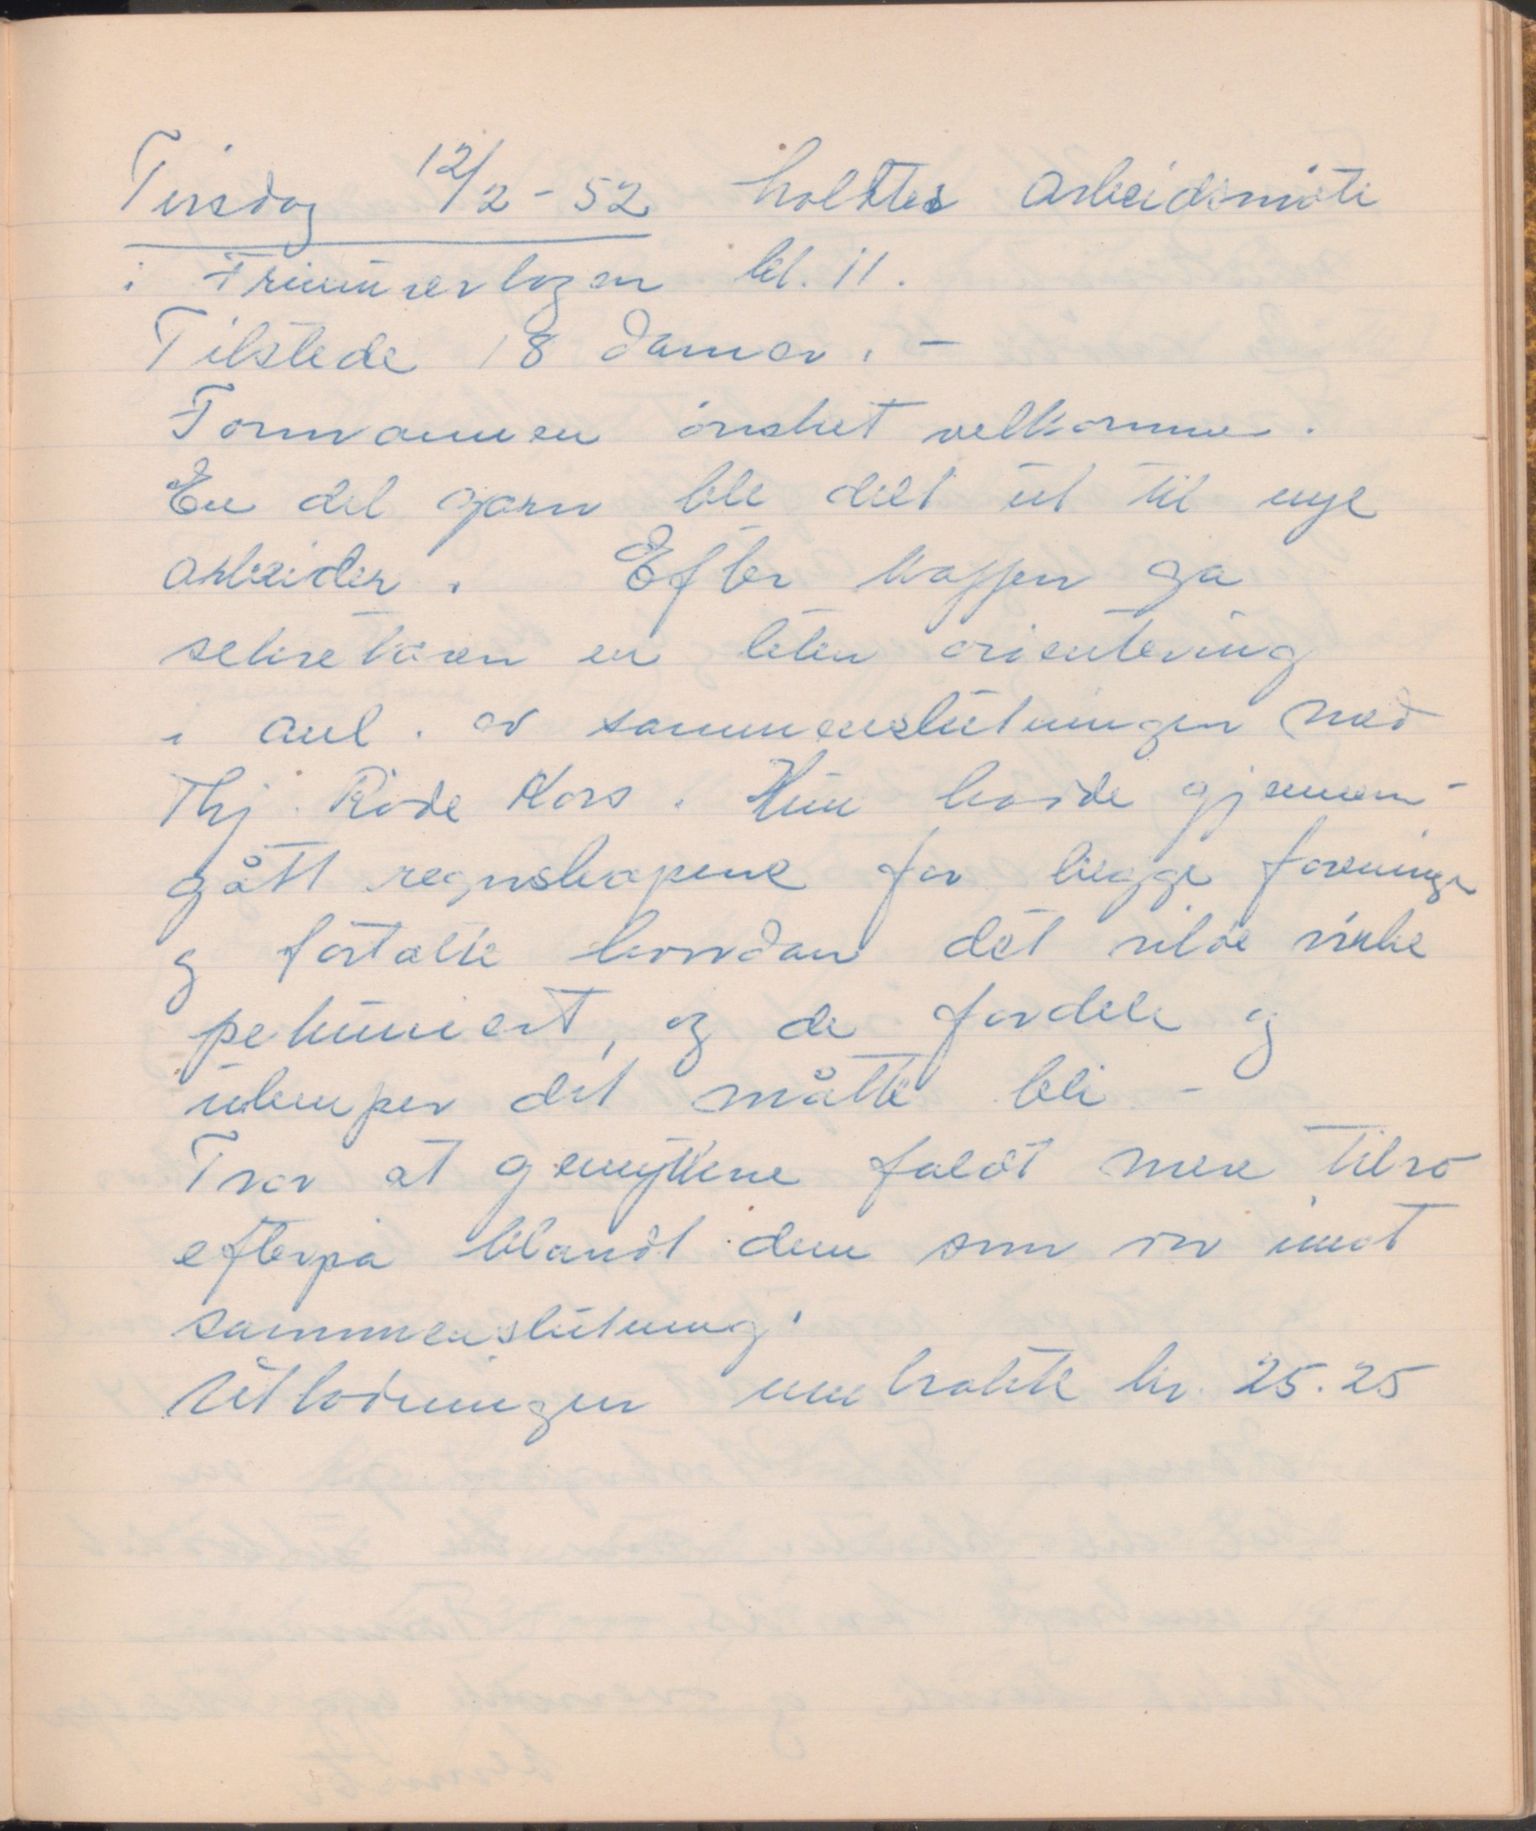 Tirsdag 12/2 - 52 holdtes arbeidsmöte
i Frimurerlogen kl. 11.
Tilstede 18 damer. -
Formannen önsket velkommen.
En del garn ble delt ut til nye
arbeider. Efter kaffen ga
sekretæren en liten orientering
i anl. av sammenslutningen med
Thj. Röde Kors. Hun hadde gjennem-
gått regnskapene for begge foreninger
og fortalte hvordan det vilde virke
pekuniært, og de fordele og
ulemper det måtte bli -
Tror at gemyttene faldt mere tilro
efterpå blandt dem som var imot
sammenslutning.
Utlodningen innbrakte kr. 25.25